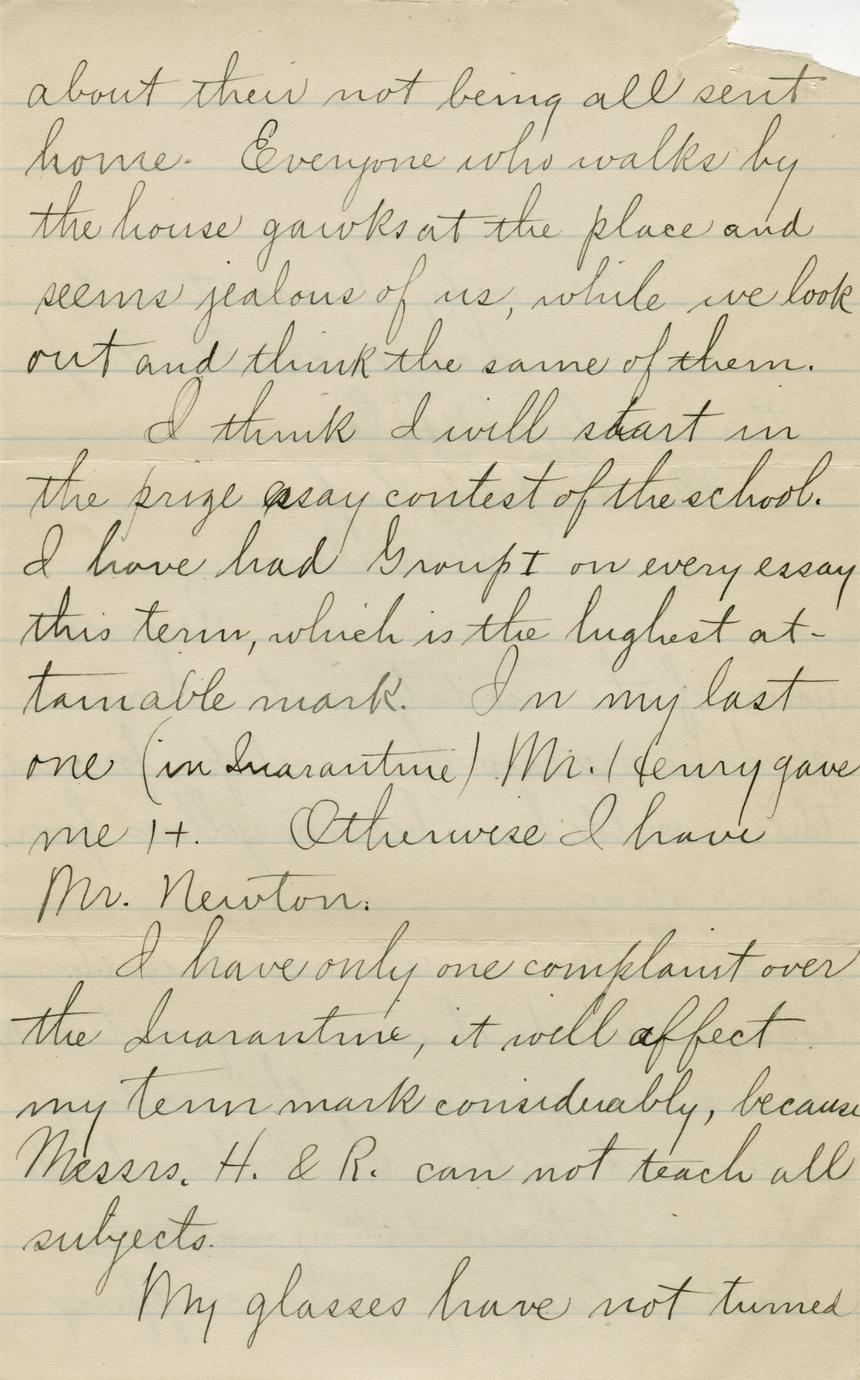 about their not being all sent
home. Everyone who walks by
the house gawks at the place and
seems jealous of us, while we look
out and think the same of them.
I think I will start in
the prize essay contest of the school.
I have had Group I on every essay
this term, which is the highest at-
tainable mark. In my last
one (in Quarantine) Mr. Henry gave
me 1+. Otherwise I have
Mr. Newton.
I have only one complaint over
the Quarantine, it will affect
my term mark considerably, because
Messrs. H. & R. can not teach all
subjects.
My glasses have not turned